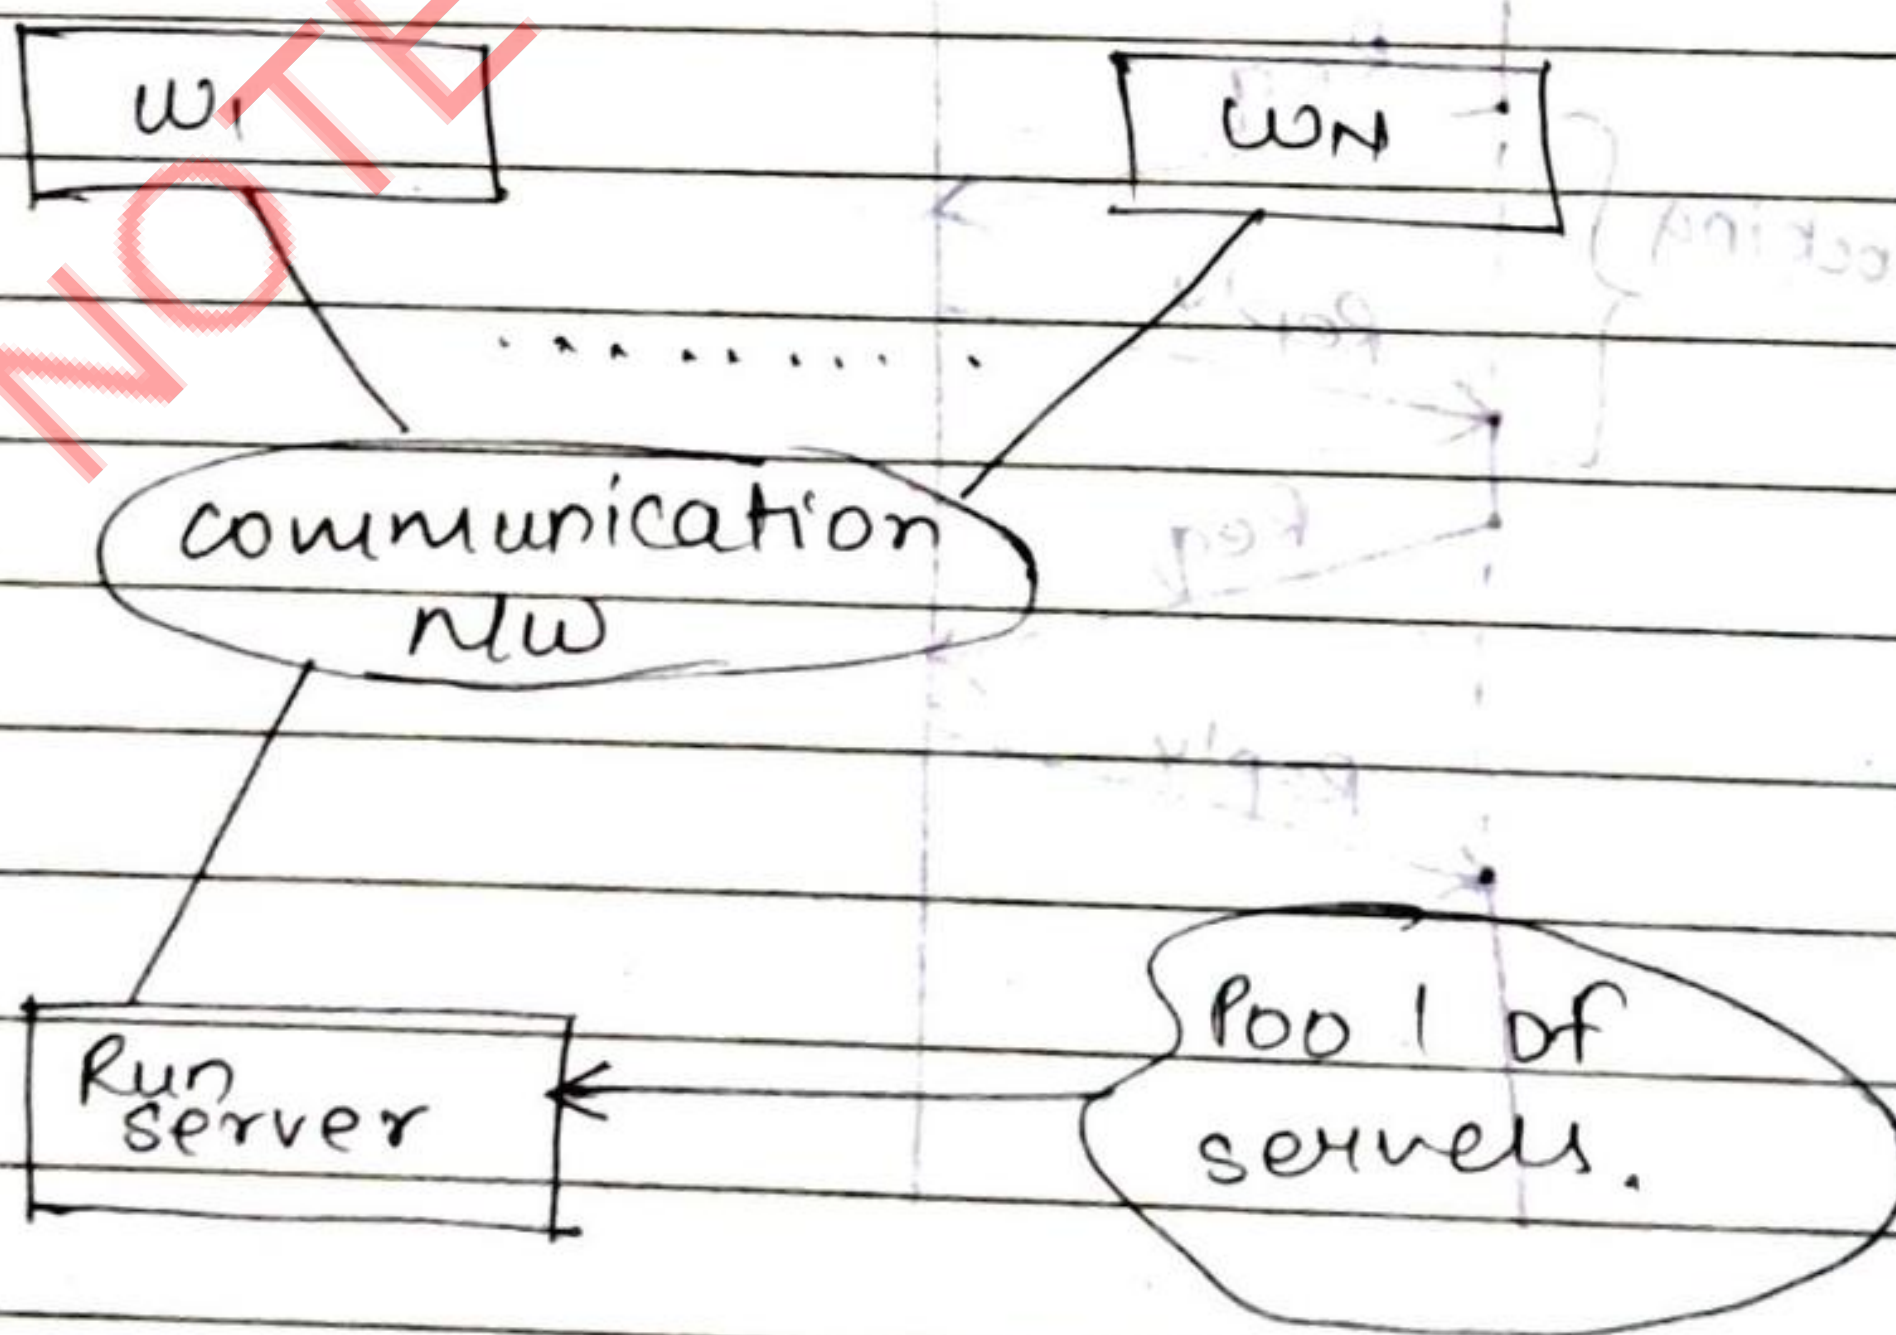 NOTE
W1
WN
communication
N/W
Run
server
Pool of
servers.